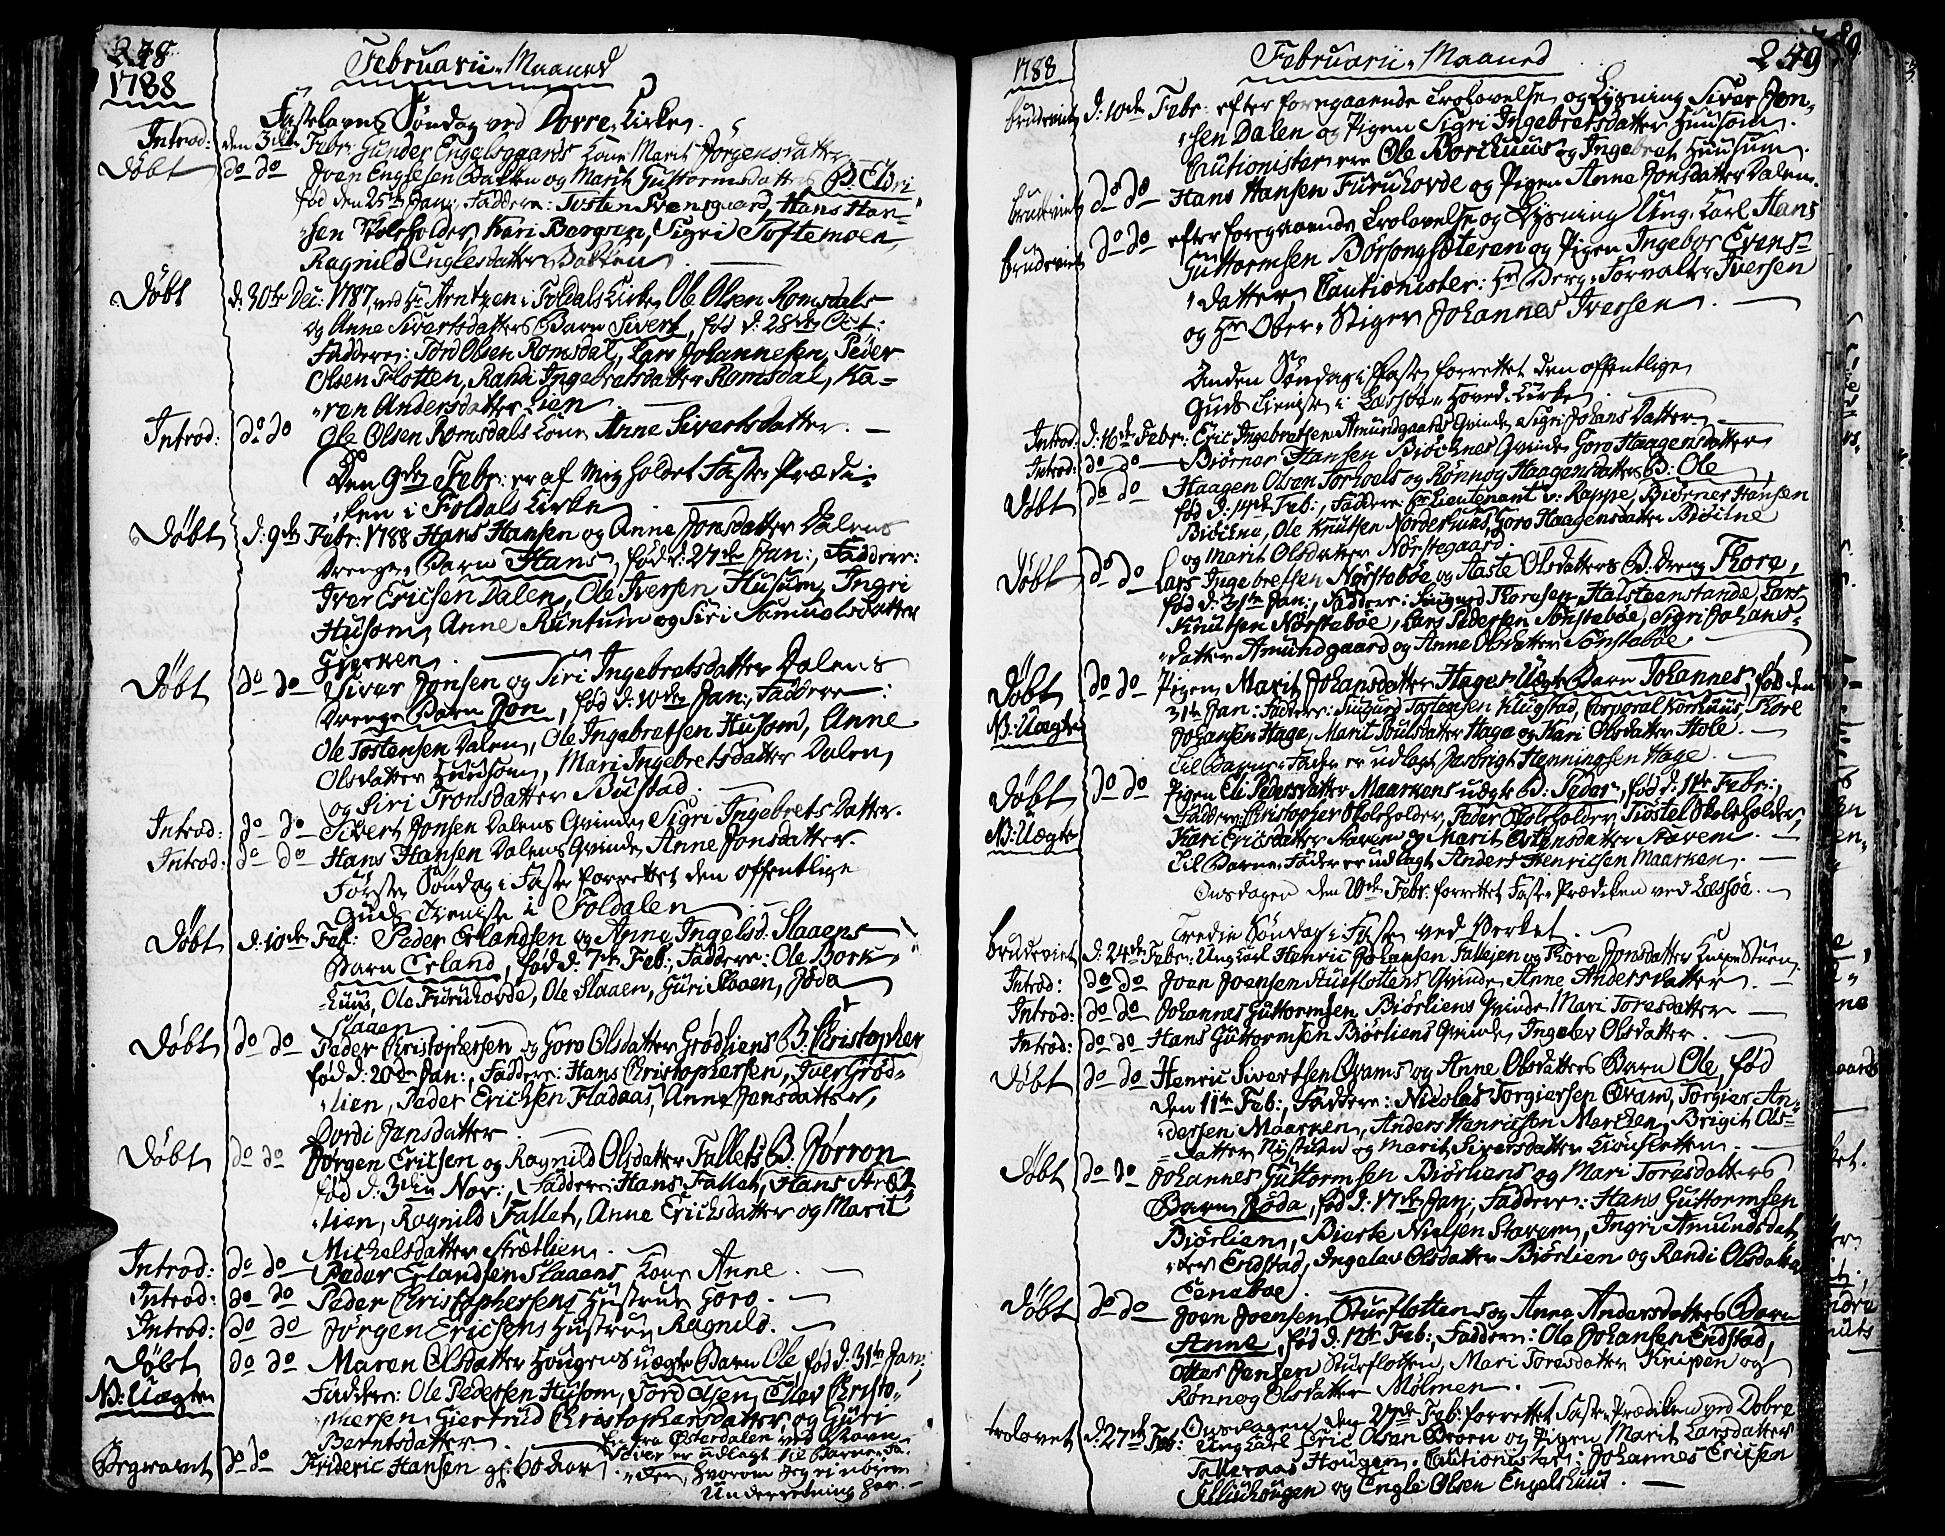 248
1788
Februarii Maaned
Fastelavns Søndag ved Dovre Kirke.
Introd: den 3die Febr: Gunder Engelsgaards Kone Marit Jørgensdatter
Døbt do do Joen Englesen Bakken og Marit Guttormsdatters B. Eldri
fød den 25de Jan:, Faddere: Tosten Svensgaard, Hans Han-
sen Skoleholder, Kari Bergseen, Sigri Toftemoen,
Ragnild Englesdatter Bakken.
Døbt d: 30te Dec: 1787, ved Hr Arntzen i Foldals Kirke, Ole Olsen Romsdals
og Anne Sivertsdatters Barn Sivert, fød d: 28de Oct:
Faddere: Tord Olsen Romsdal, Lars Johannesen, Peder
Olsen Flotten, Randi Ingebretsdatter Romsdal, Ka-
ren Andersdatter Lien.
Introd: do do Ole Olsen Romsdals Kone Anne Sivertsdatter.
Den 9de Febr: er af mig holdet Faste Prædi-
ken i Foldals Kirke
Døbt d: 9de Febr: 1788 Hans Hansen og Anne Jonsdatter Dalens
Drenge Barn Hans, fød d: 27de Jan:, Faddere:
Iver Ericsen Dalen, Ole Iversen Husum, Ingri
Husom, Anne Runtum og Siri Samuelsdatter
Gjerken.
Døbt do do Sivar Jonsen og Siri Ingebretsdatter Dalens
Drenge Barn Jon, fød d: 10de Jan: Faddere:
Ole Tostensen Dalen, Ole Ingebretsen Husom, Anne
Olsdatter Huusom, Mari Ingebretsdatter Dalen,
og Siri Tronsdatter Bustad.
Introd: do do Sivert Jonsen Dalens Qvinde Sigri Ingebrets Datter.
Introd: do do Hans Hansen Dalens Qvinde Anne Jonsdatter.
Første Søndag i Faste forrettet den offentlige
Guds Tieniste i Foldalen
Døbt d: 10de Feb: Peder Erlandsen og Anne Ingelsd: Slaaens
Barn Erland, fød d: 7de Feb:, Faddere: Ole Bork-
huus, Ole Furuhovde, Ole Slaaen, Guri Slaaen, Jøda
Slaaen.
Døbt do do Peder Christophersen og Goro Olsdatter Grødliens B. Christopher
fød d: 20de Jan:, Faddere: Hans Christophersen, Iver Grød-
lien, Peder Erichsen Fladaas, Anne Jansdatter,
Dordi Jansdatter
Døbt do do Jørgen Ericsen og Ragnild Olsdatter Fallets B. Jørron
fød d: 3die Nov:, Faddere: Hans Fallet, Hans Stræt-
lien, Ragnild Fallet, Anne Erichsdatter og Marit
Michelsdatter Strætlien.
Introd: do do Peder Erlandsen Slaaens Kone Anne.
Introd: do do Peder Christophersens Hustrue Goro.
Introd: do do Jørgen Ericsens Hustrue Ragnild.
Døbt do do Maren Olsdatter Hougens uægte Barn Ole, fød d: 31te Jan;
NB: Uægte Faddere: Ole Pedersen Husom, Tord Olsen, Elev Christo-
phersen, Giertrud Christophersdatter og Guri
Berntsdatter.
En fra Østerdalen ved Navn
er udlagt til Barne Fa-
der, hvorom jeg ei nøiere
Underretning har.
Begravet do do Frideric Hansen gl: 60 Aar
1788
Februarii Maaned
249
brudeviet d: 10de Febr: efter foregaaende Trolovelse og Lysning Sivar Jon-
sen Dalen og Pigen Sigri Ingebretsdatter Huusom.
Cautionister ere Ole Borkhuus og Ingebret Huusum.
brudeviet do do Hans Hansen Furuhovde og Pigen Anne Jonsdatter Dalen.
brudeviet do do efter foregaaende Trolovelse og Lysning Ung. Karl Hans
Guttormsen Børsongsæteren og Pigen Ingebor Evens-
datter, Cautionister: Hr Berg-Forvalter Iversen
og Hr Ober-Stiger Johannes Iversen.
Anden Søndag i Faste forrettet den offentlige
Guds Tieniste i Lessøe Hoved Kirke
Introd: d: 16de Febr: Eric Ingebretsen Amundgaards Qvinde Sigri Johans Datter
Introd: do do Biørner Hansen Biøcknes Qvinde Goro Haagensdatter
Døbt do do Haagen Olsen Torhoels og Rønnog Haagensdatters B: Ole
fød d: 14de Feb:, Faddere: Hr Lieutenant v: Rappe, Biørner Hansen
Biöckne, Ole Knutsen Norderhuus, Goro Haagensdatter Biöckne
og Marit Olsdatter Nørstegaard.
Døbt do do Lars Ingebretsen Nørstebøe og Aaste Olsdatters B. Dreng Thore,
fød d: 31te Jan:, Faddere: Siugurd Thoresen Halsteenstande, Lars
Knutsen Nørstebøe, Lars Pedersen Sønstebøe, Sigri Johans-
datter Amundgaard og Anne Olsdatter Sønstebøe.
Døbt do do Pigen Marit Johansdatter Hages Uægte Barn Johannes, fød den
NB: Uægte 31te Jan: Faddere: Siugurd Tostensen Klugstad, Corporal Korhuus, Thore
Johansen Hage, Marit Poulsdatter Hage og Kari Olsdatter Hole.
Til Barne Fader er udlagt Henningsen Hage.
Døbt do do Pigen Eli Pedersdatter Maarkens uægte B: Peder, fød d: 11te Febr:,
NB: Uægte Faddere: Christopher Skoleholder, Peder Skoleholder, Tiøstel Skoleholder,
Kari Ericsdatter Stavem og Marit Estensdatter Stavem.
Til Barne Fader er udlagt Anders Henricsen Maarken.
Onsdagen den 20de Febr: forrettet Faste Prædiken ved Lessøe.
Tredie Søndag i Faste ved Verket.
brudeviet d: 24de Febr: Ung Karl Henric Johansen Fallejen og Thore Jonsdatter Stuen.
Introd: do do Joen Joensen Stuflottens Qvinde Anne Andersdatter.
Introd: do do Johannes Guttormsen Biørliens Qvinde Mari Toresdatter
Introd: do do Hans Guttormsen Biørliens Qvinde Ingelev Olsdatter.
Døbt do do Henric Sivertsen Qvams og Anne Olsdatters Barn Ole, fød
den 11te Feb:, Faddere: Nicolas Torgiersen Qvam, Torgier An-
dersen Maarken, Anders Henricson Marken, Brigit Ols-
datter Nystuen og Marit Siversdatter.
Døbt do do Johannes Guttormsen Biørliens og Mari Toresdatters
Barn Røda, fød d: 17de Jan; Faddere: Hans Guttormsen
Biørlien, Bierte Nielsen Stavem, Ingri Amundsdat-
ter Eridstad, Ingelev Olsdatter Biørlien og Randi Olsdatter
Enebøe.
Døbt do do Joen Joensen Stuflottens og Anne Andersdatters Barn
Anne, fød d: 12te Feb:, Faddere: Ole Johansen Eridstad,
Ottar Jensen Stuflotten, Mari Toresdatter Knipen og
Rønnog Olsdatter Mølmen.
Onsdagen den 27de Feb: forrettet Faste Prædiken ved Dovre
trolovet d: 27de Feb: Ung Karl Eric Olsen Broen og Pigen Marit Larsdatter
Talleraas Hougen. Cautionister: Johannes Ericsen
Tilliuhougen og Engle Olsen Engelshuus.